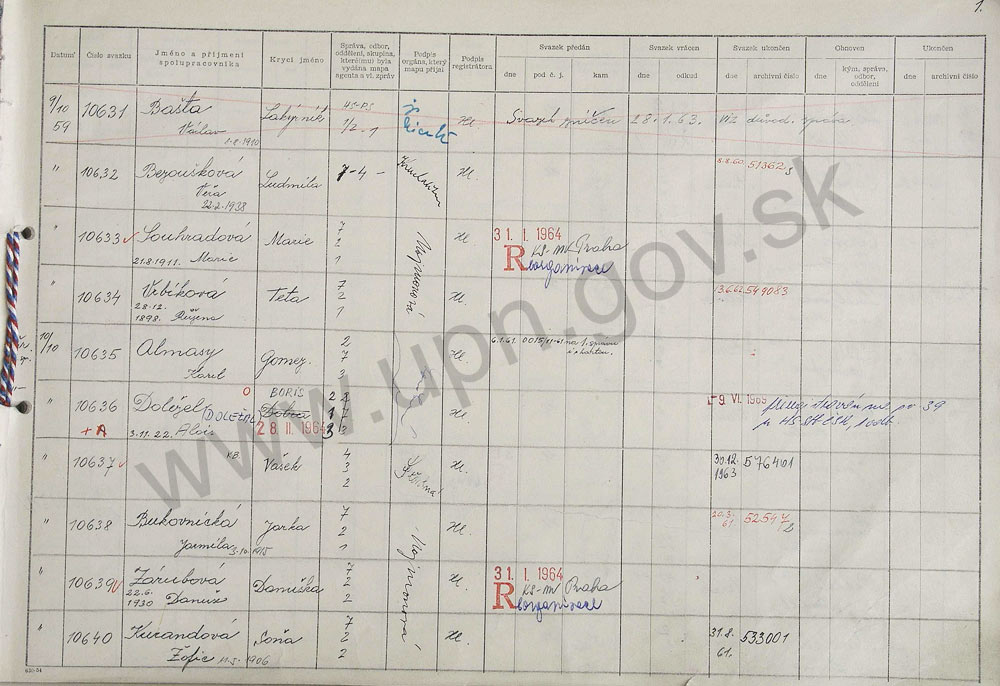 1.
Datum
Číslo svazku
Jméno a příjmení
spolupracovníka
Krycí jméno
Správa, odbor,
oddělení, skupina,
které(mu) byla
vydána mapa
agenta a vl. zpráv
Podpis
orgána, který
mapu přijal
Podpis
registrátora
Svazek předán
dne
pod č. j.
kam
Svazek vrácen
dne
odkud
Svazek ukončen
dne
archivní číslo
Obnoven
dne
kým, správa,
odbor,
oddělení
Ukončen
dne
archivní číslo
9/10
59
10631
Bašta
Václav
1-2 - 1
Svazek zničen 28.1.63. viz důvod. zpráva
" 10632
Bezoušková
Věra
22.2.1938
Ludmila
7-4 -
8.8.60. 51362
" 10633
Souhradová
21.8.1911. Marie
Marie
7
2
1
31. I. 1964
KS-MV Praha
Reorganizace
" 10634
Vrbíková
28.12.
1898. Růžena
Teta
7
2
1
13.6.62. 549083
10/10
10635
Almasy
Karel
Gomez.
2
7
3
6.1.61. 0015/
na 1. správu
" 10636
+A
Doležel
DOLEŽAL
3.11.22. Alois
BORIS
28. II. 1964
-9. VI. 1965
" 10637
KB.
Vašek
4
3
2
30.12.
1963
576401
" 10638
Bukovnická
Jarmila 3.10.1915
Jarka
7
2
1
20.3.
61.
" 10639
Zárubová
22.6.
1930 Danuše
Danuška
7
2
2
31. I. 1964
KS-MV Praha
Reorganizace
" 10640
Kurandová
Žofie 11.5.1906
Soňa
7
2
2
31.8.
61.
533001
www.upn.gov.sk